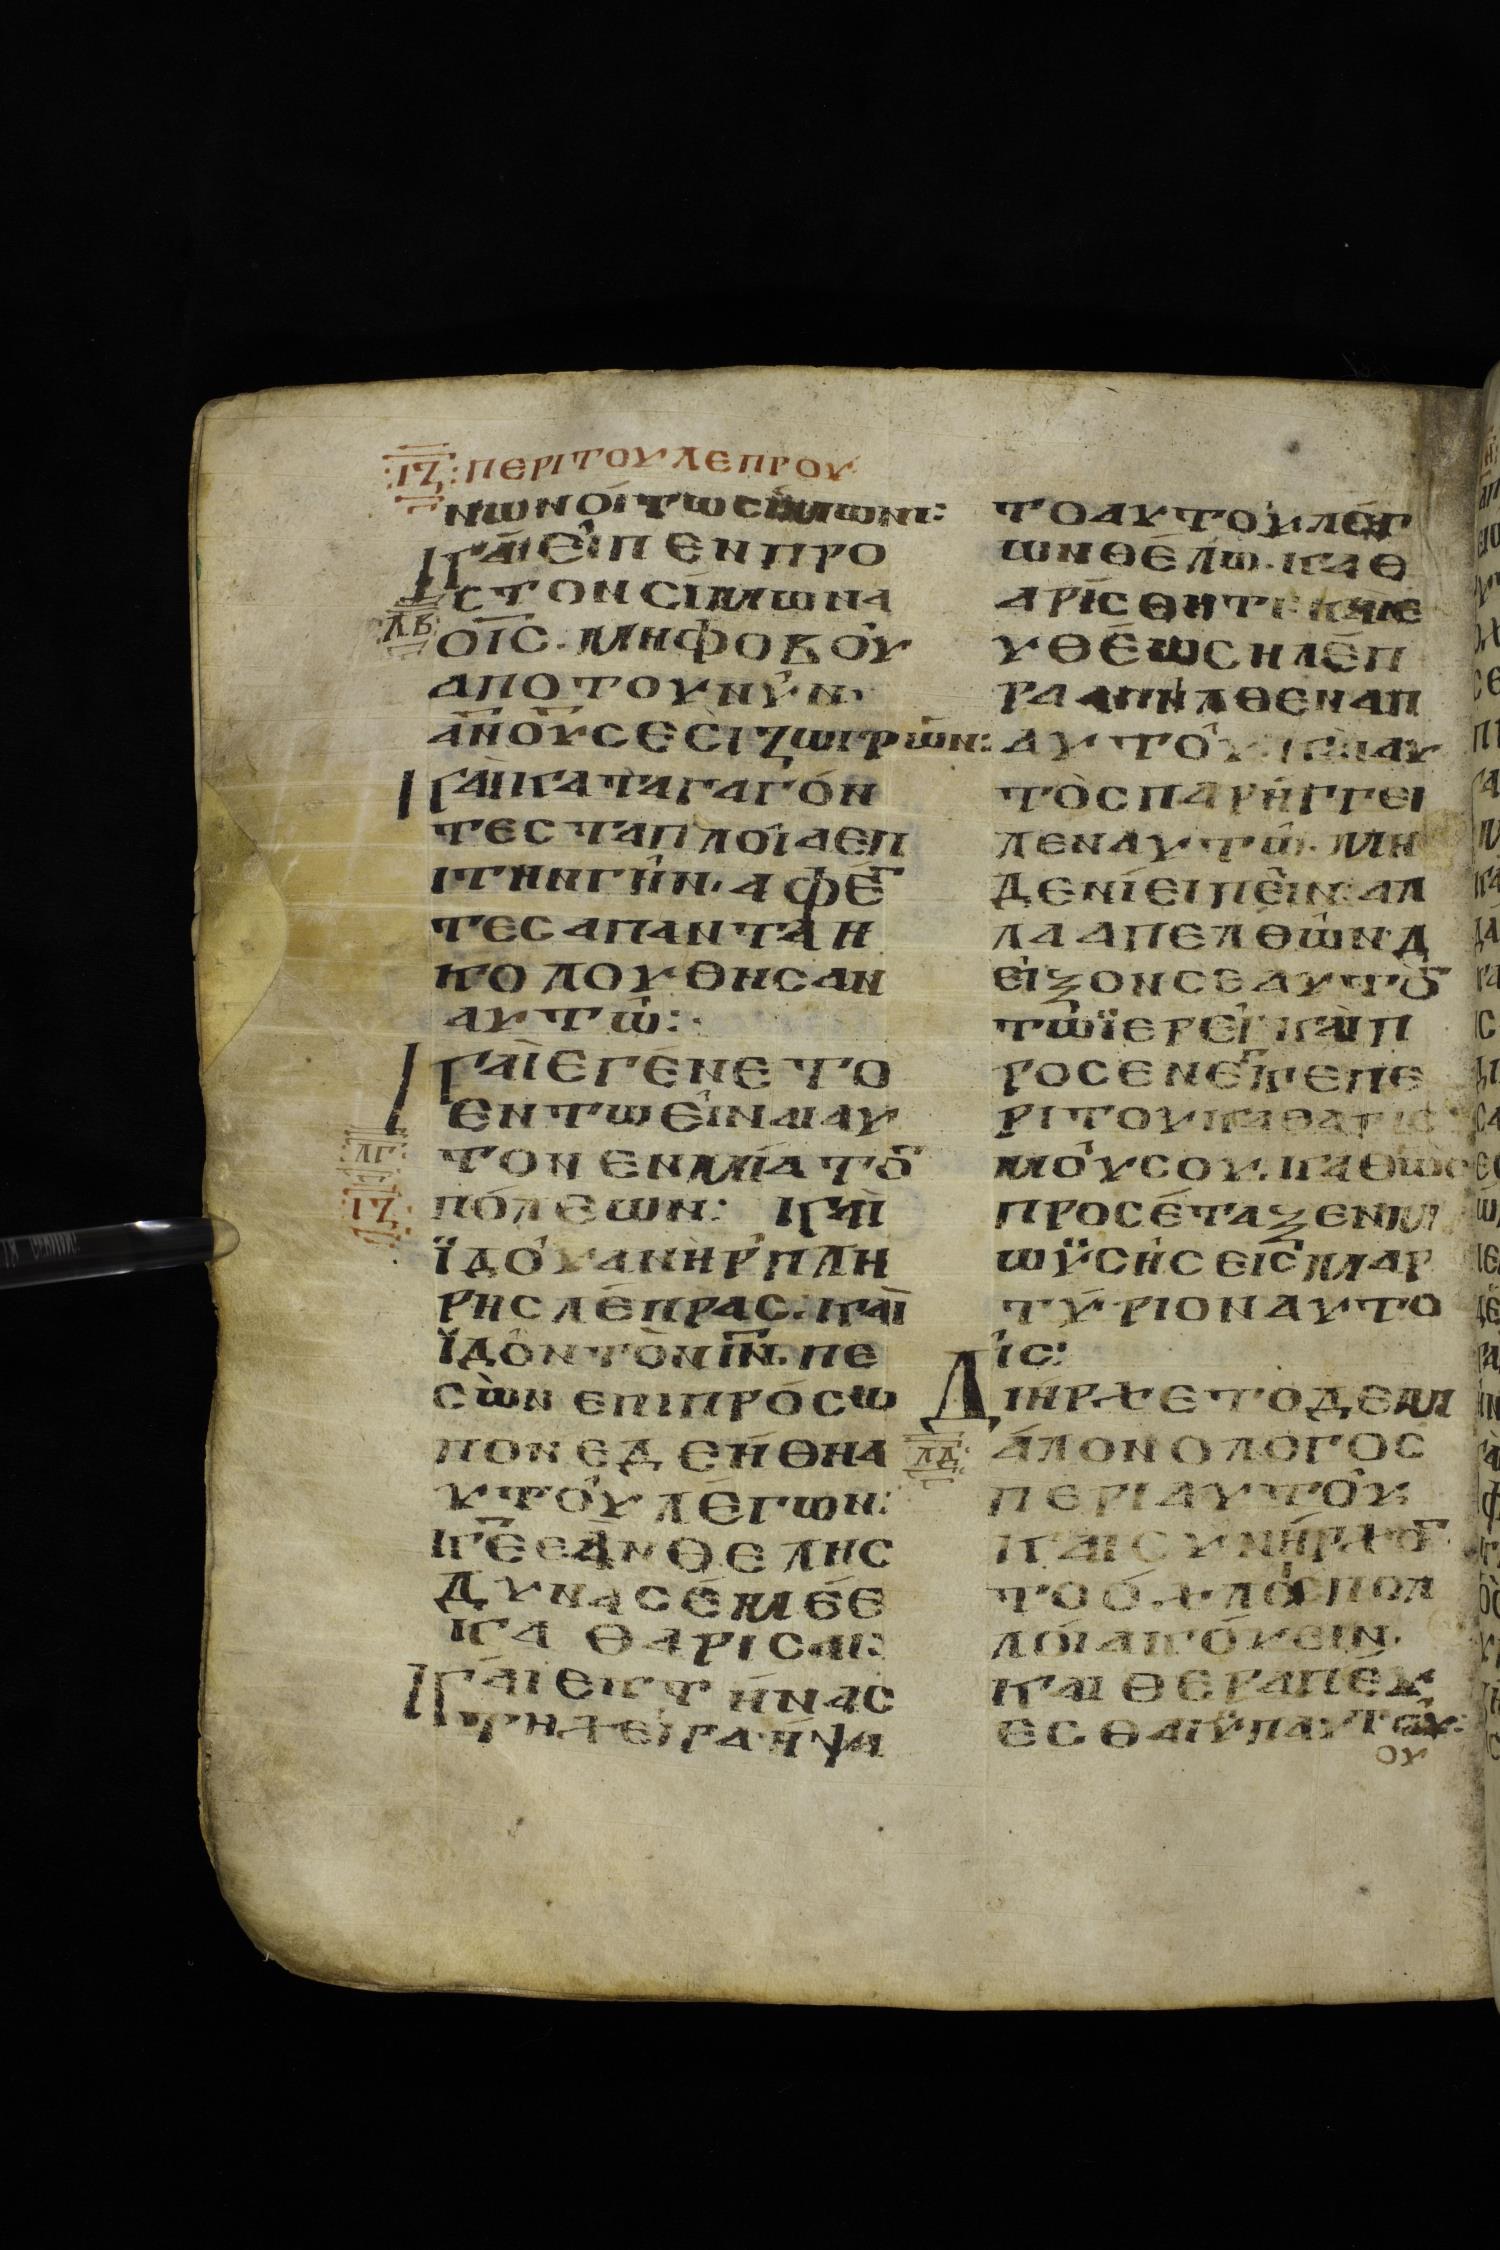 ΙΖ: ΠΕΡΙ ΤΟΥ ΛΕΠΡΟΥ
ΝΩΝΟΙΤΩCΙΜΩΝΙ:
ΚΑΙΕΙΠΕΝΠΡΟ
CΤΟΝCΙΜΩΝΑ
ΛΒ
ΟΙC. ΜΗΦΟΒΟΥ
ΑΠΟΤΟΥΝΥΝ.
ΑΝΟΥCΕCΙΖΩΓΡΩΝ:
ΚΑΙΚΑΤΑΓΑΓΟΝ
ΤΕCΤΑΠΛΟΙΑΕΠ
ΙΤΗΝΓΗΝ. ΑΦΕ
ΤΕCΑΠΑΝΤΑΗ
ΚΟΛΟΥΘΗCΑΝ
ΑΥΤΩ:
ΚΑΙΕΓΕΝΕΤΟ
ΕΝΤΩΕΙΝΑΙΑΥ
ΛΓ
ΤΟΝΕΝΜΙΑΤΟ
ΙΖ
ΠΟΛΕΩΝ: ΚΑΙ
ΪΔΟΥΑΝΗΡΠΛΗ
ΡΗCΛΕΠΡΑC. ΚΑΙ
ΪΔΟΝΤΟΝΙΝ. ΠΕ
CΩΝΕΠΙΠΡΟCΩ
ΠΟΝΕΔΕΗΘΗΑ
ΥΤΟΥΛΕΓΩΝ:
ΚΕΕΑΝΘΕΛΗC
ΔΥΝΑCΕΜΕΕ
ΚΑΘΑΡΙCΑΙ:
ΚΑΙΕΚΤΗΝΑC
ΤΗΧΕΙΡΑ. ΗΨΑ
ΤΟΑΥΤΟΥ. ΛΕΓ
ΩΝΘΕΛΩ. ΚΑΘ
ΑΡΙCΘΗΤΙ ΚΑΙΕ
ΥΘΕΩCΗΛΕΠ
ΡΑΑΠΗΛΘΕΝΑΠ
ΑΥΤΟΥ. ΚΑΙΑΥ
ΤΟCΠΑΡΗΓΓΕΙ
ΛΕΝΑΥΤΩ. ΜΗ
ΔΕΝΙΕΙΠΕΙΝ. ΑΛ
ΛΑΑΠΕΛΘΩΝ. Δ
ΕΙΞΟΝCΕΑΥΤΟ
ΤΩΪΕΡΕΙ. ΚΑΙΠ
ΡΟCΕΝΕΚΕΠΕ
ΡΙΤΟΥΚΑΘΑΡΙC
ΜΟΥCΟΥ. ΚΑΘΩC
ΠΡΟCΕΤΑΞΕΝΜ
ΩΫCΗCΕΙCΜΑΡ
ΤΥΡΙΟΝΑΥΤΟ
ΙC:
ΔΙΗΡΧΕΤΟΔΕΜ
ΛΔ
ΑΛΟΝΟΛΟΓΟC
ΠΕΡΙΑΥΤΟΥ
ΚΑΙCΥΝΗΡΧΟ
ΤΟΟΧΛΟΙΠΟΛ
ΛΟΙΑΚΟΥΕΙΝ.
ΚΑΙΘΕΡΑΠΕΥ
ΕCΘΑΙΫΠΑΥΤΟΥ:
ΟΥ